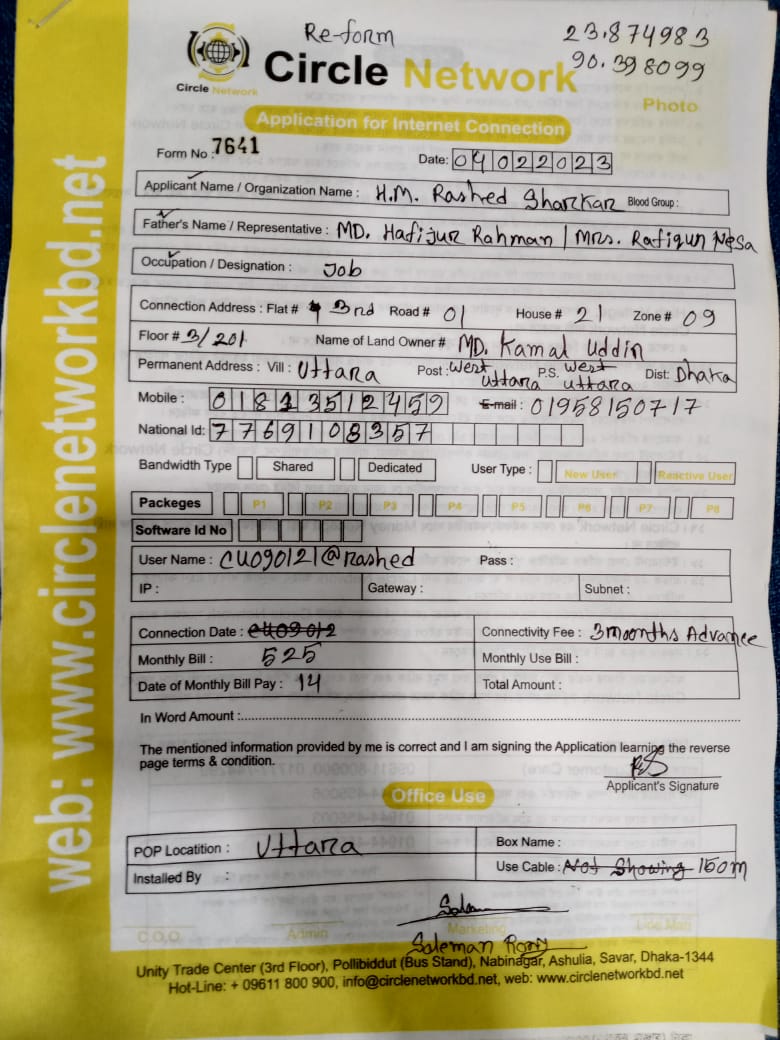 Re-form
23.874983
90.398099
Circle Network
Circle Network
Photo
Application for Internet Connection
Form No : 7641
Date: 04022023
Applicant Name / Organization Name : H.M. Rashed Sharkar Blood Group :
Father's Name / Representative : MD. Hafijur Rahman | Mrs. Rafiqun Nesa
Occupation / Designation : Job
Connection Address : Flat # 3rd Road # 01 House # 21 Zone # 09
Floor # 3/201 Name of Land Owner # MD. Kamal Uddin
Permanent Address : Vill : Uttara Post : West Uttara P.S. West Uttara Dist: Dhaka
Mobile : 01813512459 E-mail : 01958150717
National Id: 7769108357
Bandwidth Type Shared Dedicated User Type : New User Reactive User
Packeges P1 P2 P3 P4 P5 P6 P7 P8
Software Id No
User Name : CU090121@rashed Pass :
IP : Gateway : Subnet :
Connection Date : cu09012 Connectivity Fee : 3 moonths Advance
Monthly Bill : 525 Monthly Use Bill :
Date of Monthly Bill Pay : 14 Total Amount :
In Word Amount :
The mentioned information provided by me is correct and I am signing the Application learning the reverse
page terms & condition.
RS
Applicant's Signature
Office Use
POP Locatition : Uttara Box Name :
Installed By : Use Cable : Not Showing 150m
C.O.O Admin Marketing Line Man
Saleman Rony
Unity Trade Center (3rd Floor), Pollibiddut (Bus Stand), Nabinagar, Ashulia, Savar, Dhaka-1344
Hot-Line: + 09611 800 900, info@circlenetworkbd.net, web: www.circlenetworkbd.net
web: www.circlenetworkbd.net